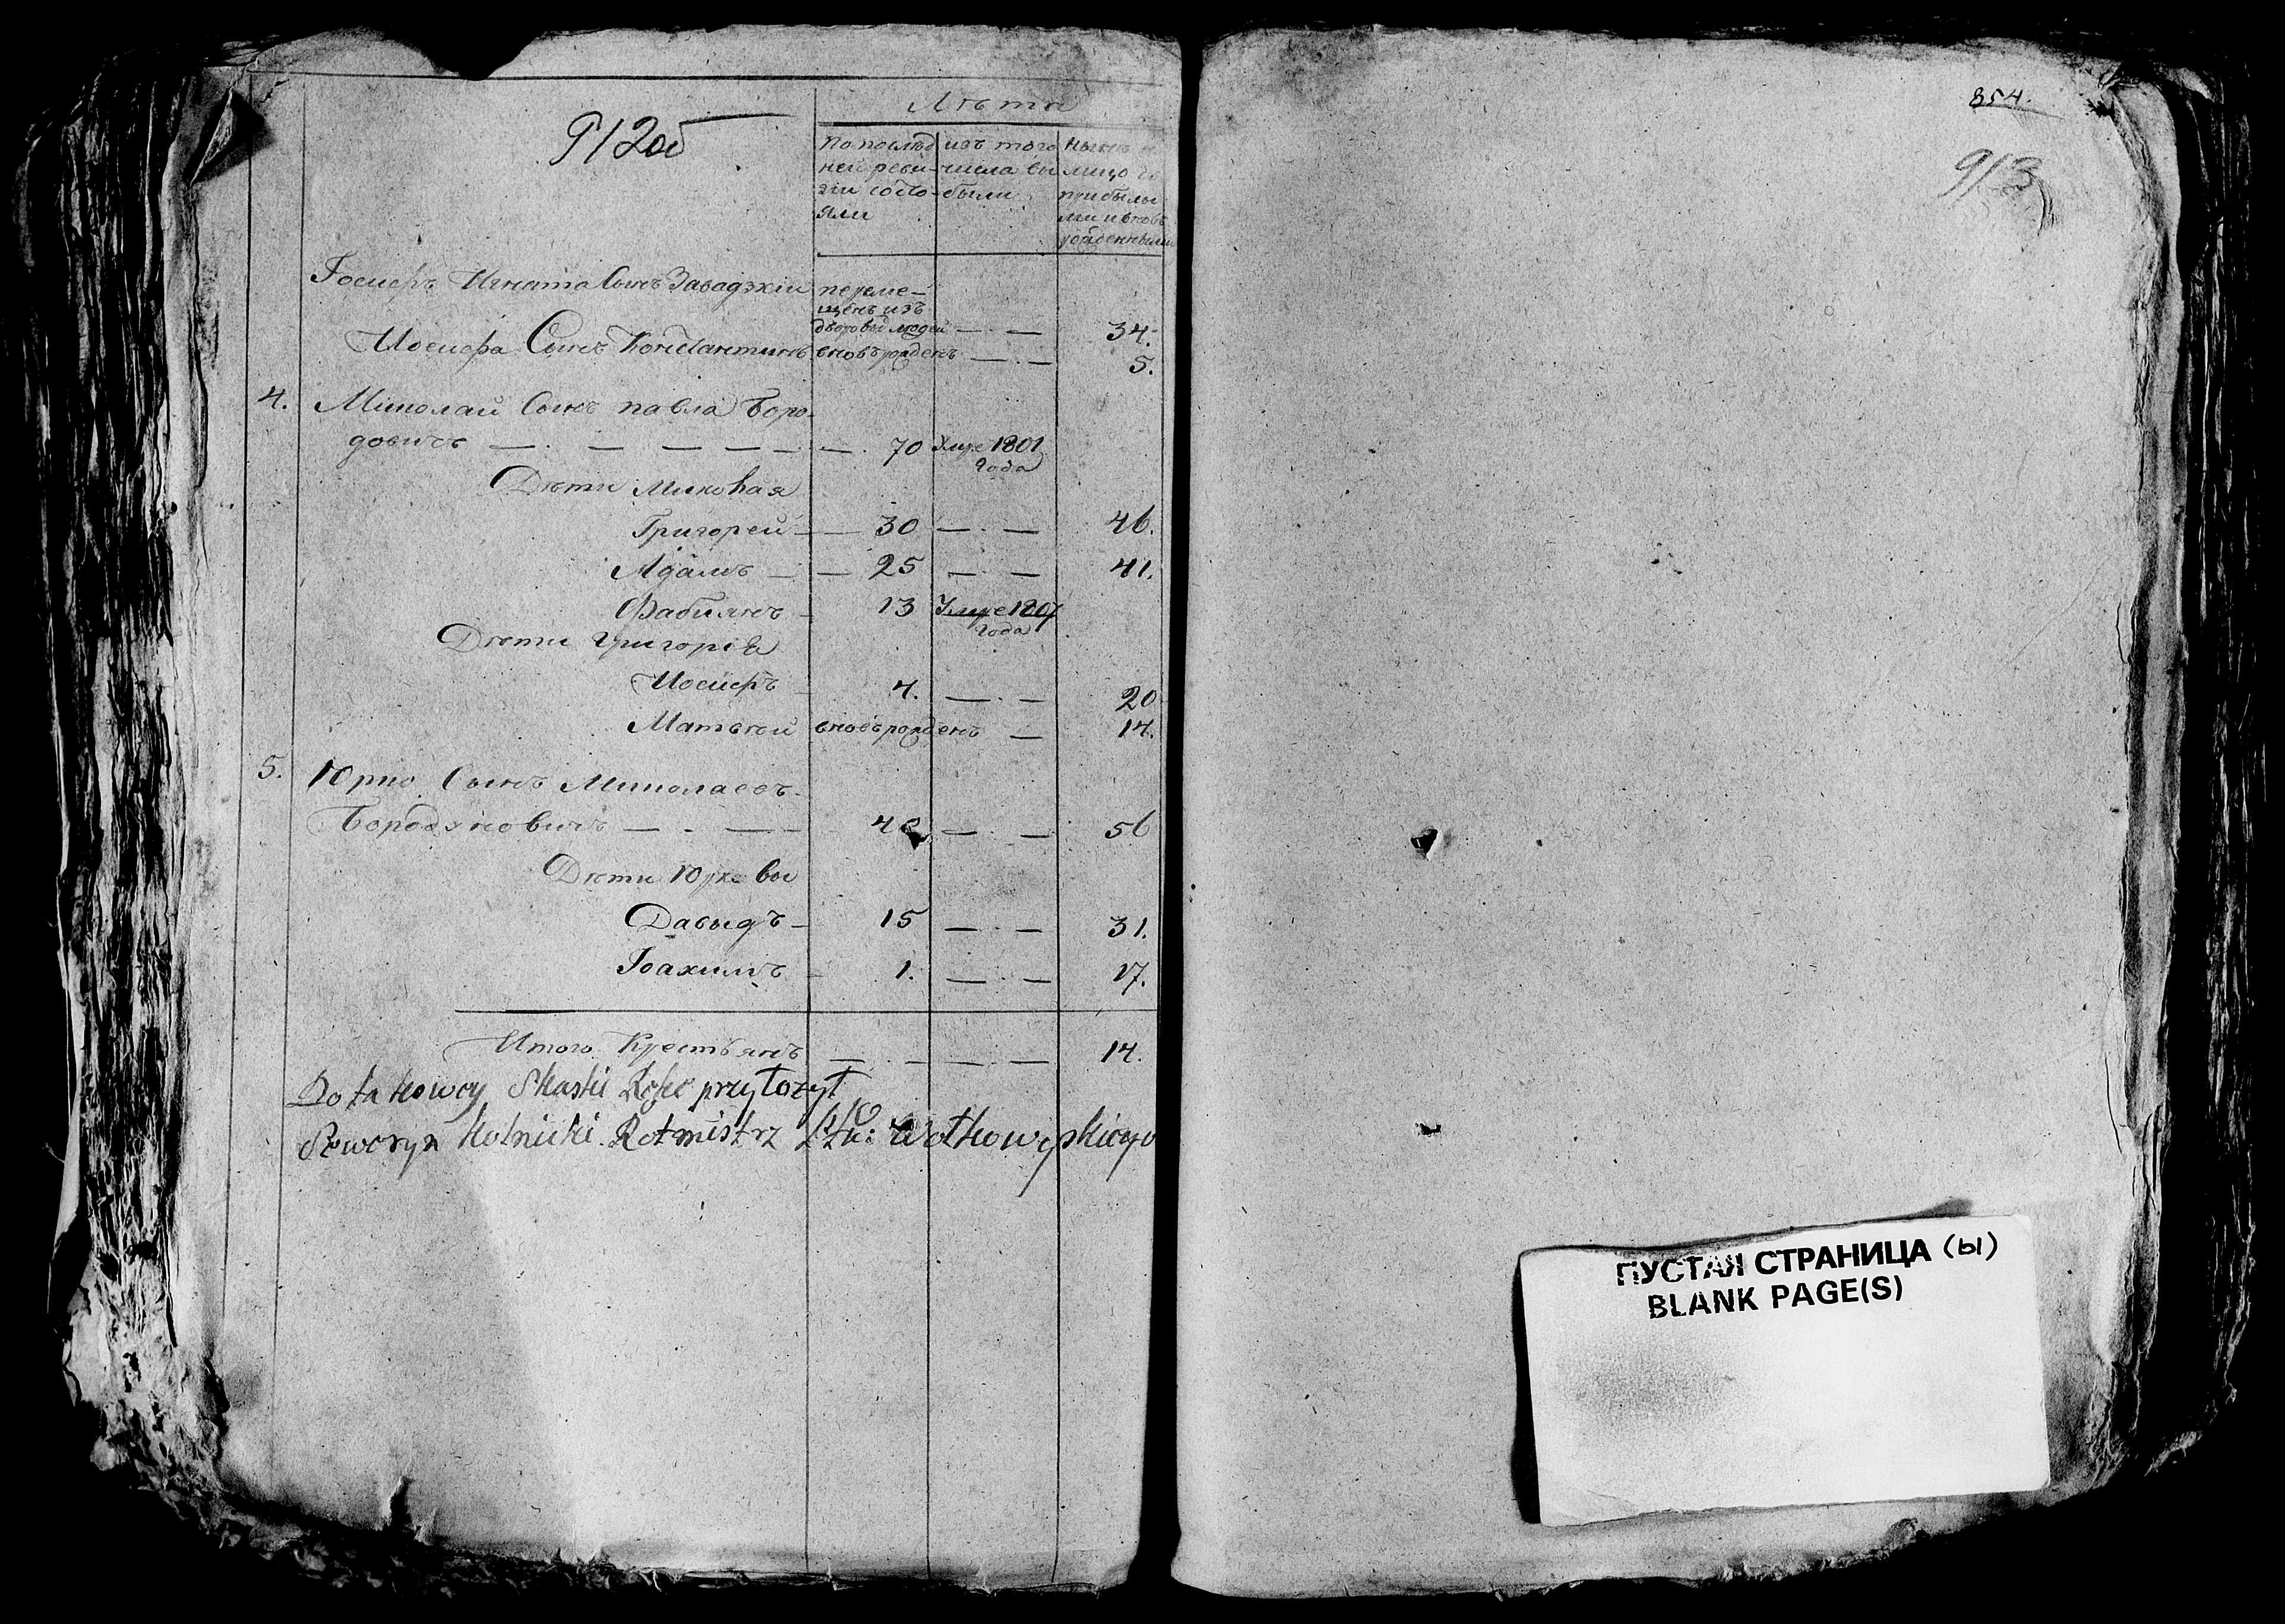 912об
Лѣта
По послѣд ней ревизіи состояли
изъ того числа выбыли
Нынѣ на лицо съ прибылыми и вновь рожденными
Іосифъ Игната Сынъ Завадзкіи переме-
щенъ изъ
дворовой людей — . — 34.
Иосифа Сынъ Константинъ вновь рожденъ — . — 5.
4. Миколаи Сынъ павла Боро-
довичъ — . — — — — . 70 Умре 1801
Года
Дѣти Миколая
Григореи — 30 — . — 46.
Адамъ — — 25 — . — 41.
Фабиянъ — 13 Умре 1807
Года
Дѣти Григорія
Иосифъ — 4. — . — 20
Матвѣй вновь рожденъ — 14.
5. Юрко Сынъ Миколаевъ
— . — — 40 — . — 56
Дѣти Юрковы
Давыдъ — 15 — . — 31.
Іоахимъ — 1. — . — 17.
Итого Крестьянъ — . — . — 14.
Do takowey Skaski Rękę przytożyt
Seweryn Rotmistrz Ptu: Wołkowyskiego
854.
913
ПУСТАЯ СТРАНИЦА (Ы)
BLANK PAGE(S)